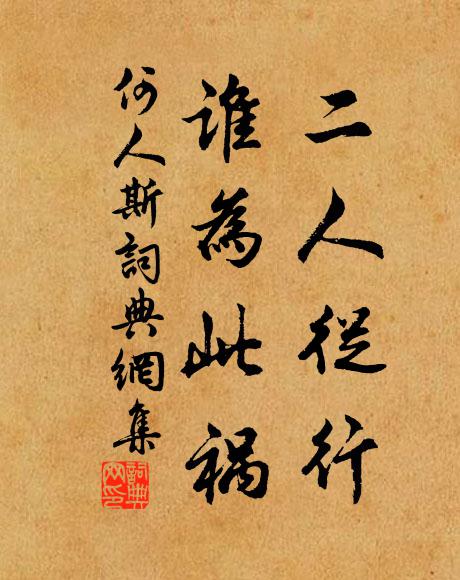 二人從行
誰為此禍
何人斯詞典網集
詞典
网印